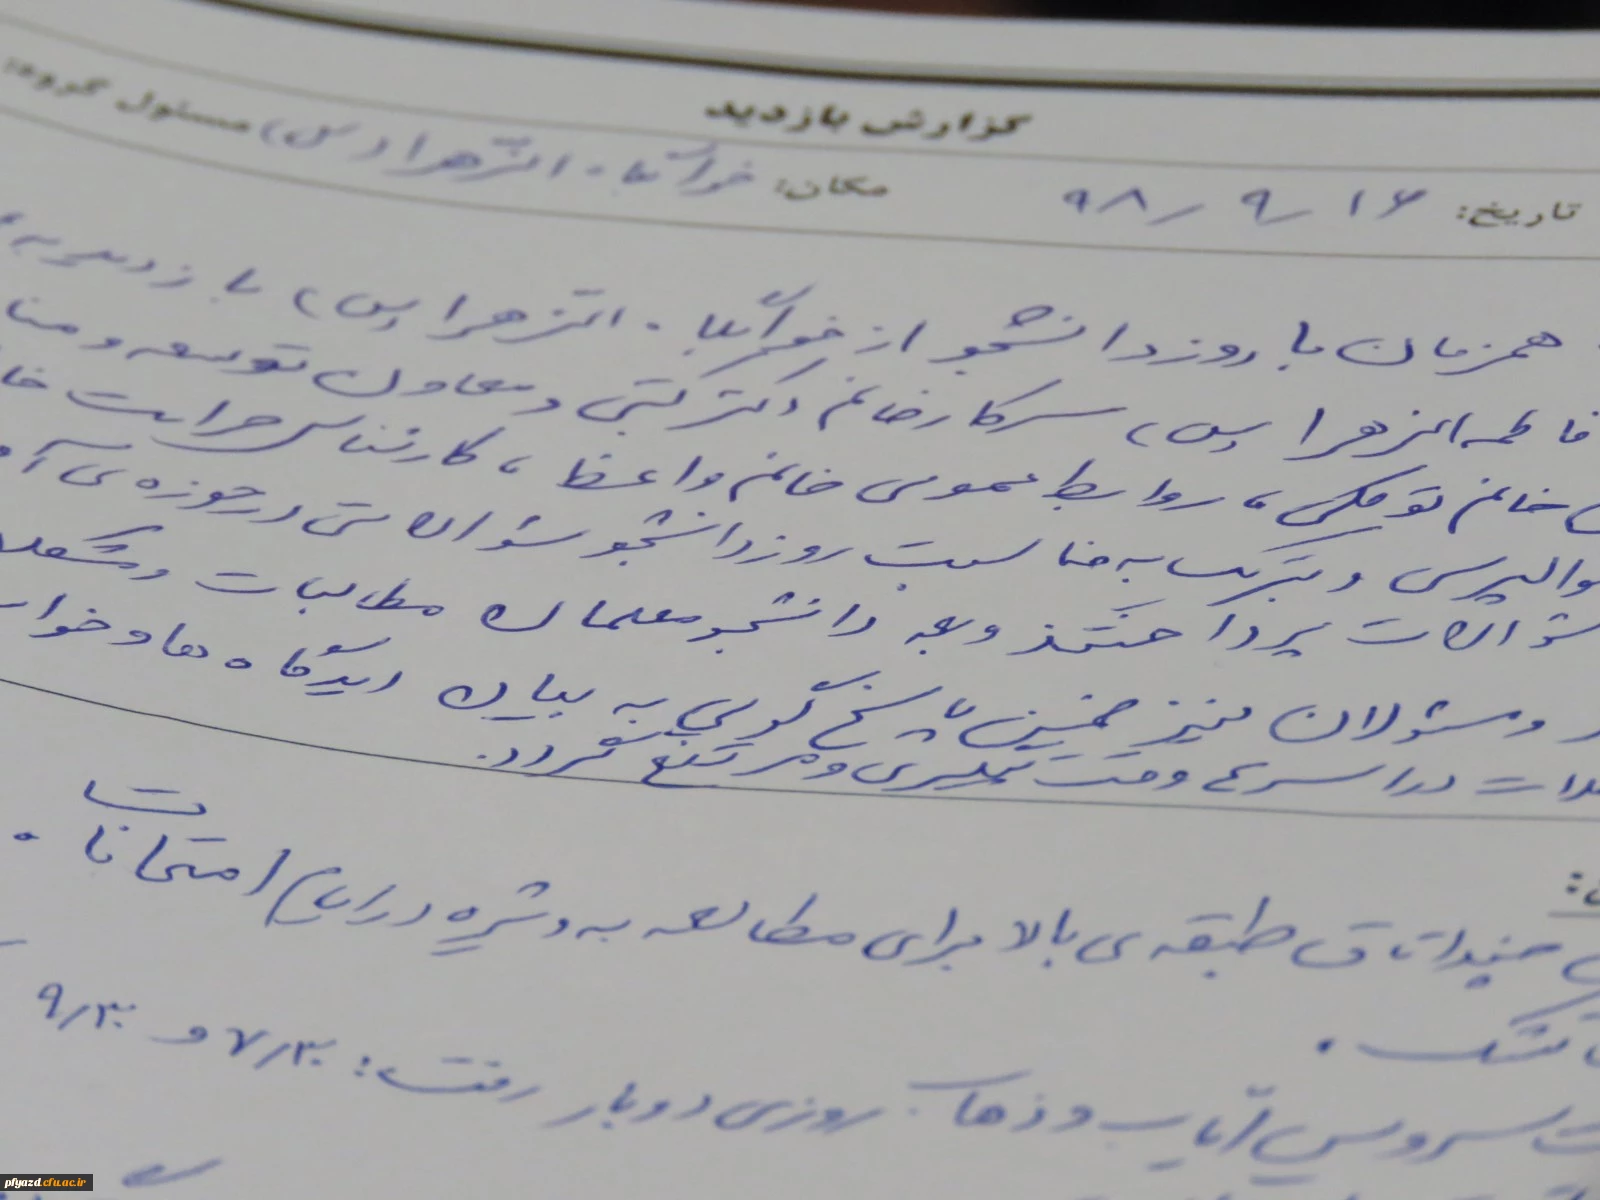 گزارش بازدید
تاریخ: ۹۸/۹/۱۶ مکان: خوابگاه الزهرا (س) مسئول گروه:
همزمان با روز دانشجو از خوابگاه الزهرا (س) بازدید به
فاطمه الزهرا (س)، سرکار خانم دکتر و معاون توسعه و
خانم توکلی، روابط عمومی خانم واعظ، کارشناس حراست
احوالپرسی و تبریک به مناسبت روز دانشجو سؤالاتی در حوزه‌ی
سؤالات پرداختند و بقیه دانشجو معلمان مطالبات و مشکلات
و مسئولان نیز ضمن پاسخ گویی به بیان دیدگاه ها و
در اسرع وقت پیگیری و مرتفع گردد.
چند اتاق طبقه ی بالا برای مطالعه به ویژه در ایام امتحانات
تشک.
سرویس ایاب و ذهاب روزی دو بار رفت: ۷/۳۰ و ۹/۳۰
pfyazd.cfu.ac.ir